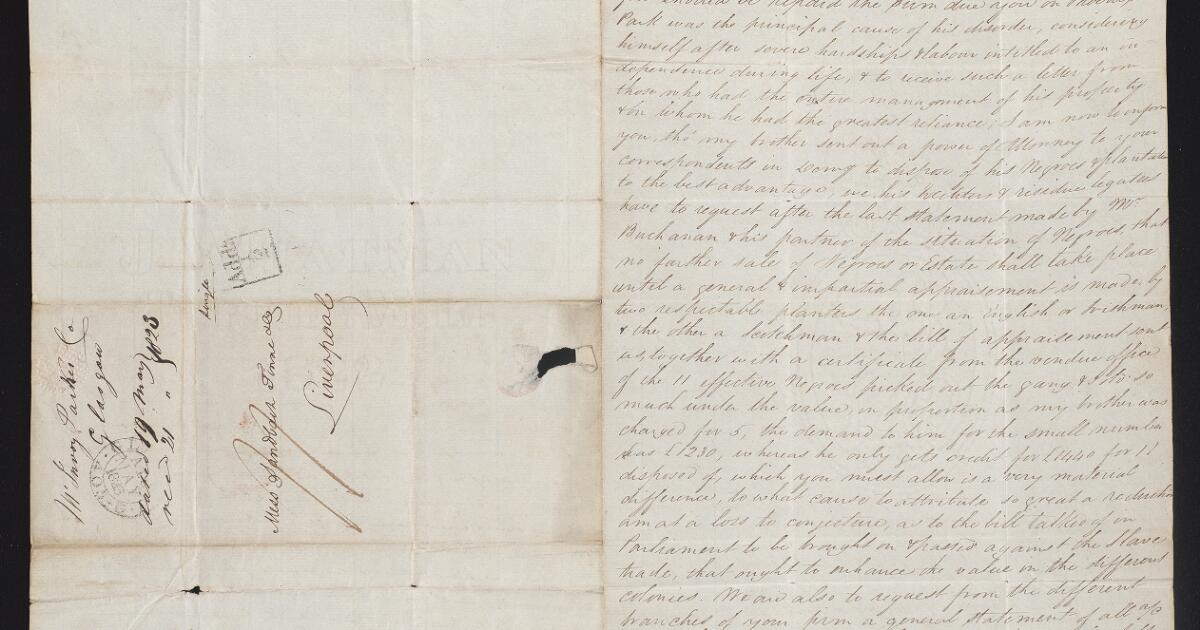 McInroy Parker & Co
Glasgow
dated 19 May 1823
recd 21 " "
single
Addl
½
Mess Sandbach Tinne & Co
Liverpool
you should be repaid the sum due you on
Park was the principal cause of his disorder, considering
himself after severe hardships & labour intitled to an in
dependence during life, & to receive such a letter from
those who had the entire management of his property
& on whom he had the greatest reliance; I am now to inform
you, tho' my brother sent out a power of Attorney to your
correspondents in Demy to dispose of his Negroes & plantation
to the best advantage, we his Executors & residue legatees
have to request after the last statement made by Mr
Buchanan & his partner of the situation of Negroes, that
no farther sale of Negroes or Estate shall take place
until a general & impartial appraisement is made, by
two respectable planters the one an English or Irishman,
& the other a Scotchman & the bill of appraisement sent
us, together with a certificate from the vendue office
of the 11 effective Negroes picked out the gang & sold so
much under the value, in proportion as my brother was
charged for 5, the demand to him for the small number
was £1230, whereas he only gets credit for £1440 for 11
disposed of, which you must allow is a very material
difference, to what cause to attribute so great a reduction
am at a loss to conjecture, as to the bill talked of in
Parliament to be brought on & passed against the Slave
trade, that ought to enhance the value in the different
colonies. We are also to request from the different
branches of your firm a general statement of all a/c